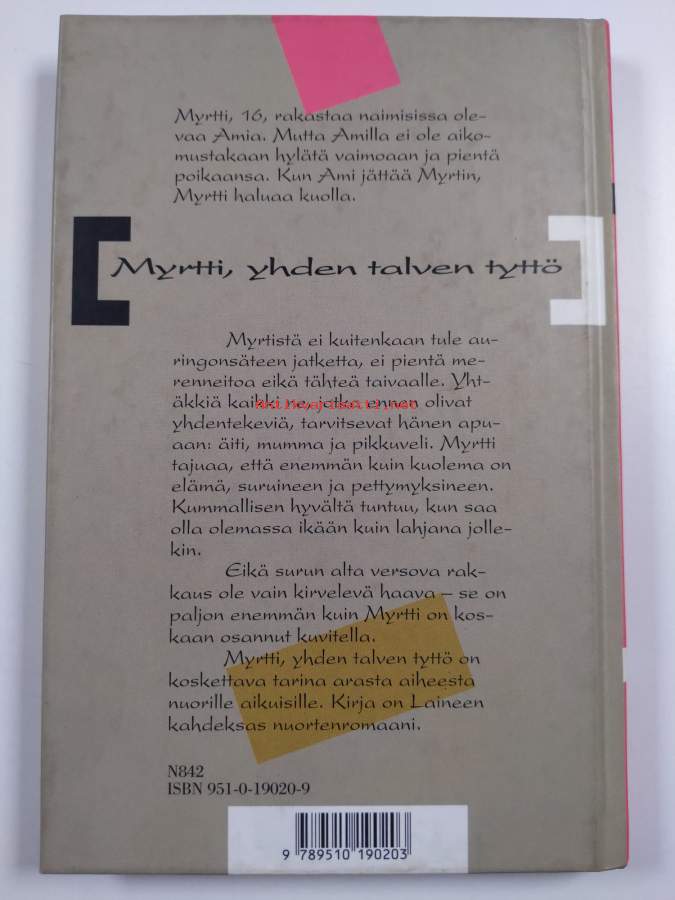 Myrtti, 16, rakastaa naimisissa ole-
vaa Amia. Mutta Amilla ei ole aiko-
mustakaan hylätä vaimoaan ja pientä
poikaansa. Kun Ami jättää Myrtin,
Myrtti haluaa kuolla.
[Myrtti, yhden talven tyttö]
Myrtistä ei kuitenkaan tule au-
ringonsäteen jatketta, ei pientä me-
renneitoa eikä tähteä taivaalle. Yht-
äkkiä kaikki ne, jotka ennen olivat
Antikvariaatti.net
yhdentekeviä, tarvitsevat hänen apu-
aan: äiti, mumma ja pikkuveli. Myrtti
tajuaa, että enemmän kuin kuolema on
elämä, suruineen ja pettymyksineen.
Kummallisen hyvältä tuntuu, kun saa
olla olemassa ikään kuin lahjana jolle-
kin.
Eikä surun alta versova rak-
kaus ole vain kirvelevä haava – se on
paljon enemmän kuin Myrtti on kos-
kaan osannut kuvitella.
Myrtti, yhden talven tyttö on
koskettava tarina arasta aiheesta
nuorille aikuisille. Kirja on Laineen
kahdeksas nuortenromaani.
N842
ISBN 951-0-19020-9
9 789510 190203